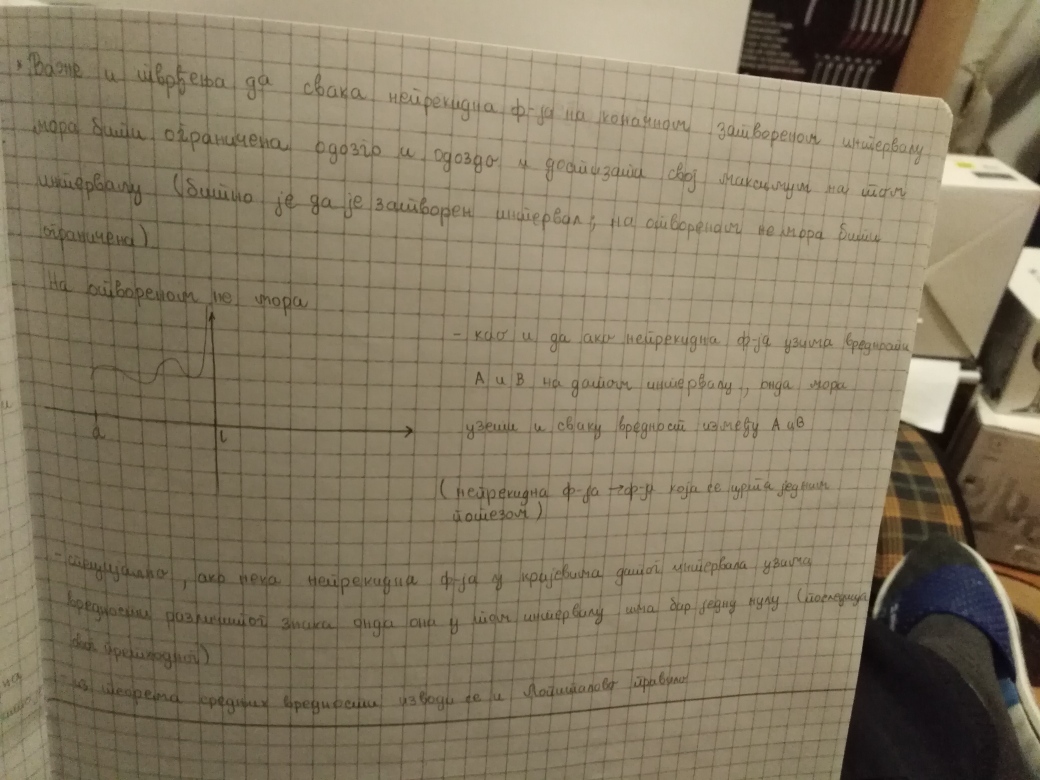 * Важе и тврђења да свака непрекидна ф-ја на коначном затвореном интервалу
мора бити ограничена одозго и одоздо и достизати свој максимум на том
интервалу (битно је да је затворен интервал; на отвореном не мора бити
ограничена)
На отвореном не мора
- као и да ако непрекидна ф-ја узима вредности
A и B на датом интервалу, онда мора
узети и сваку вредност између A и B
a
(непрекидна ф-ја → ф-ја која се црта једним
потезом)
- специјално, ако нека непрекидна ф-ја у крајевима датог интервала узима
вредности различитог знака онда она у том интервалу има бар једну нулу (последица
претходног)
- из теорема средњих вредности изводи се и Лопиталово правило